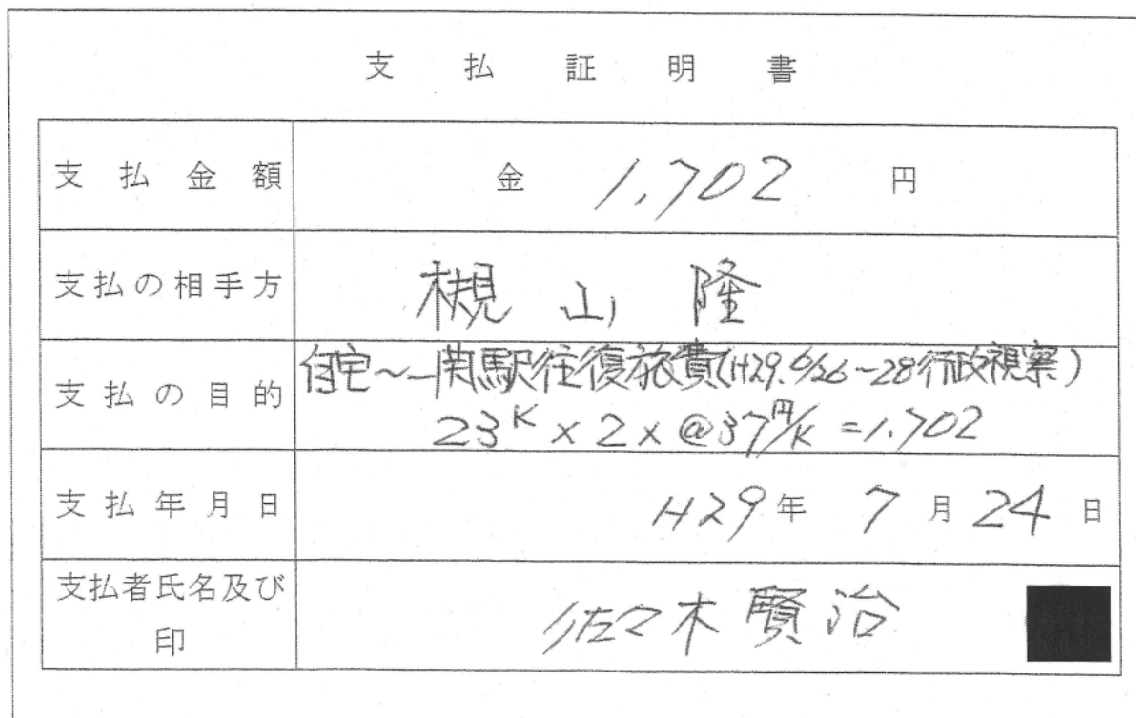 支払証明書
支払金額 金 1,702 円
支払の相手方 槻山 隆
支払の目的 自宅~一関駅往復旅費(H29.6/26~28行政視察)
23K×2×@37円/K=1,702
支払年月日 H29年 7月24日
支払者氏名及び印 佐々木賢治